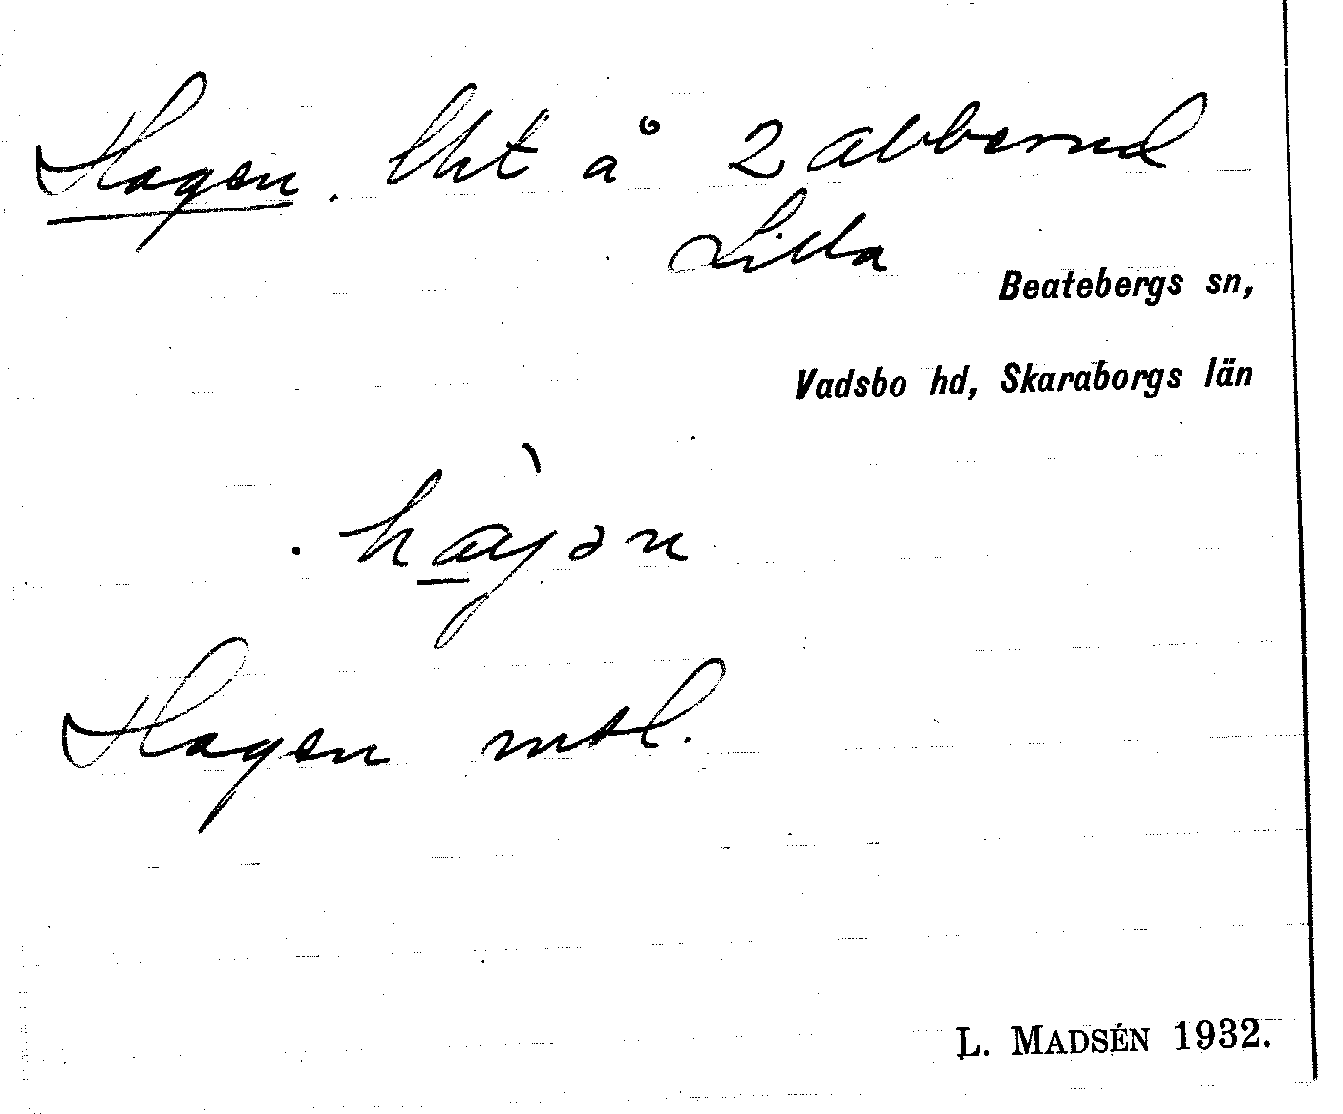 Hagen. lht å 2 abberud
Lilla
Beatebergs sn,
Vadsbo hd, Skaraborgs län
hàɡən
Hagen mtl.
L. MADSÉN 1932.